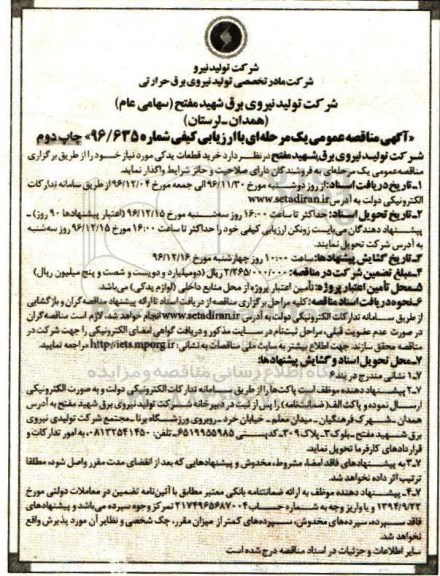 شرکت تولید نیرو
شرکت مادر تخصصی تولید نیروی برق حرارتی
شرکت تولید نیروی برق شهید مفتح (سهامی عام)
(همدان - لرستان)
«آگهی مناقصه عمومی یک مرحله‌ای با ارزیابی کیفی شماره ۹۶/۶۳۵» چاپ دوم
شرکت تولید نیروی برق شهید مفتح در نظر دارد خرید قطعات یدکی مورد نیاز خود را از طریق برگزاری
مناقصه عمومی یک مرحله‌ای به فروشندگان دارای صلاحیت و حائز شرایط واگذار نماید.
۱ـ تاریخ دریافت اسناد: از روز دوشنبه مورخ ۹۶/۱۱/۳۰ الی جمعه مورخ ۹۶/۱۲/۰۴ از طریق سامانه تدارکات
الکترونیکی دولت به آدرس www.setadiran.ir
۲ـ تاریخ تحویل اسناد: حداکثر تا ساعت ۱۶:۰۰ روز سه‌شنبه مورخ ۹۶/۱۲/۱۵ (اعتبار پیشنهادها ۹۰ روز)
پیشنهاد دهندگان می‌بایست زونکن ارزیابی کیفی خود را حداکثر تا ساعت ۱۶:۰۰ مورخ ۹۶/۱۲/۱۵ روز سه‌شنبه
به آدرس شرکت تحویل نمایند.
۳ـ تاریخ گشایش پیشنهادها: ساعت ۱۰:۰۰ روز چهارشنبه مورخ ۹۶/۱۲/۱۶
۴ـ مبلغ تضمین شرکت در مناقصه: ۲/۲۶۵/۰۰۰/۰۰۰ ریال (دو میلیارد و دویست و شصت و پنج میلیون ریال)
۵ـ محل تأمین اعتبار پروژه: تأمین اعتبار پروژه از محل منابع داخلی (لوازم یدکی) می‌باشد.
۶ـ نحوه دریافت اسناد مناقصه: کلیه مراحل برگزاری مناقصه از دریافت اسناد تا ارائه پیشنهاد مناقصه‌گران و بازگشایی
از طریق سامانه تدارکات الکترونیکی دولت به آدرس: www.setadiran.ir انجام خواهد شد. لازم است مناقصه‌گران
در صورت عدم عضویت قبلی، مراحل ثبت‌نام در سایت مذکور و دریافت گواهی امضای الکترونیکی را جهت شرکت در
مناقصه محقق سازند. جهت اطلاع بیشتر به سایت ملی مناقصات به نشانی: http://iets.mporg.ir مراجعه نمایید.
۷ـ محل تحویل اسناد و گشایش پیشنهادها:
۷-۱ نشانی مندرج در بند
۷-۲ پیشنهاد دهنده موظف است پاکت‌ها را از طریق سامانه تدارکات الکترونیکی دولت و به صورت الکترونیکی
ارسال نموده و پاکت الف (ضمانتنامه) را پس از ثبت در دبیرخانه شرکت تولید نیروی برق شهید مفتح به آدرس
همدان ـ شهرک فرهنگیان ـ میدان معلم ـ خیابان خرد ـ روبروی ورزشگاه برنا ـ مجتمع شرکت تولیدی نیروی
شهید مفتح ـ بلوک ۲ ـ پلاک ۳۰۹ ـ کدپستی ۶۵۱۹۹۵۵۹۸۵ ـ تلفن: ۰۸۱۳۲۵۴۱۴۵۰ به امور تدارکات و
قراردادهای کارفرما تحویل نماید.
۷-۳ به پیشنهادهای فاقد امضا، مشروط، مخدوش و پیشنهادهایی که بعد از انقضای مدت مقرر واصل شود، مطلقا
ترتیب اثر داده نخواهد شد.
۷-۴ پیشنهاد دهنده موظف به ارائه ضمانتنامه بانکی معتبر مطابق با آئین‌نامه تضمین در معاملات دولتی مورخ
۱۳۹۴/۹/۲۲ و یا واریز وجه به شماره حساب ۲۱۷۴۹۶۵۶۸۷۰۰۴ تمرکز وجوه سپرده می‌باشد و پیشنهادهای
فاقد سپرده، سپرده‌های مخدوش، سپرده‌های کمتر از میزان مقرر، چک شخصی و نظایر آن مورد پذیرش واقع
نخواهد شد.
سایر اطلاعات و جزئیات در اسناد مناقصه درج شده است